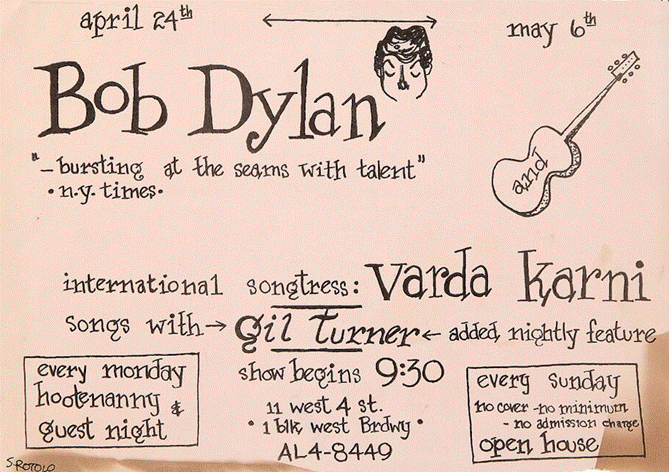 april 24th
may 6th
Bob Dylan
"- bursting at the seams with talent"
• n.y. times •
and
international songtress: Varda Karni
songs with → Gil Turner ← added, nightly feature
every monday
hootenanny &
guest night
show begins 9:30
11 west 4 st.
• 1 blk west Brdwy •
AL4-8449
every sunday
no cover - no minimum
- no admission charge
open house
S. ROTOLO